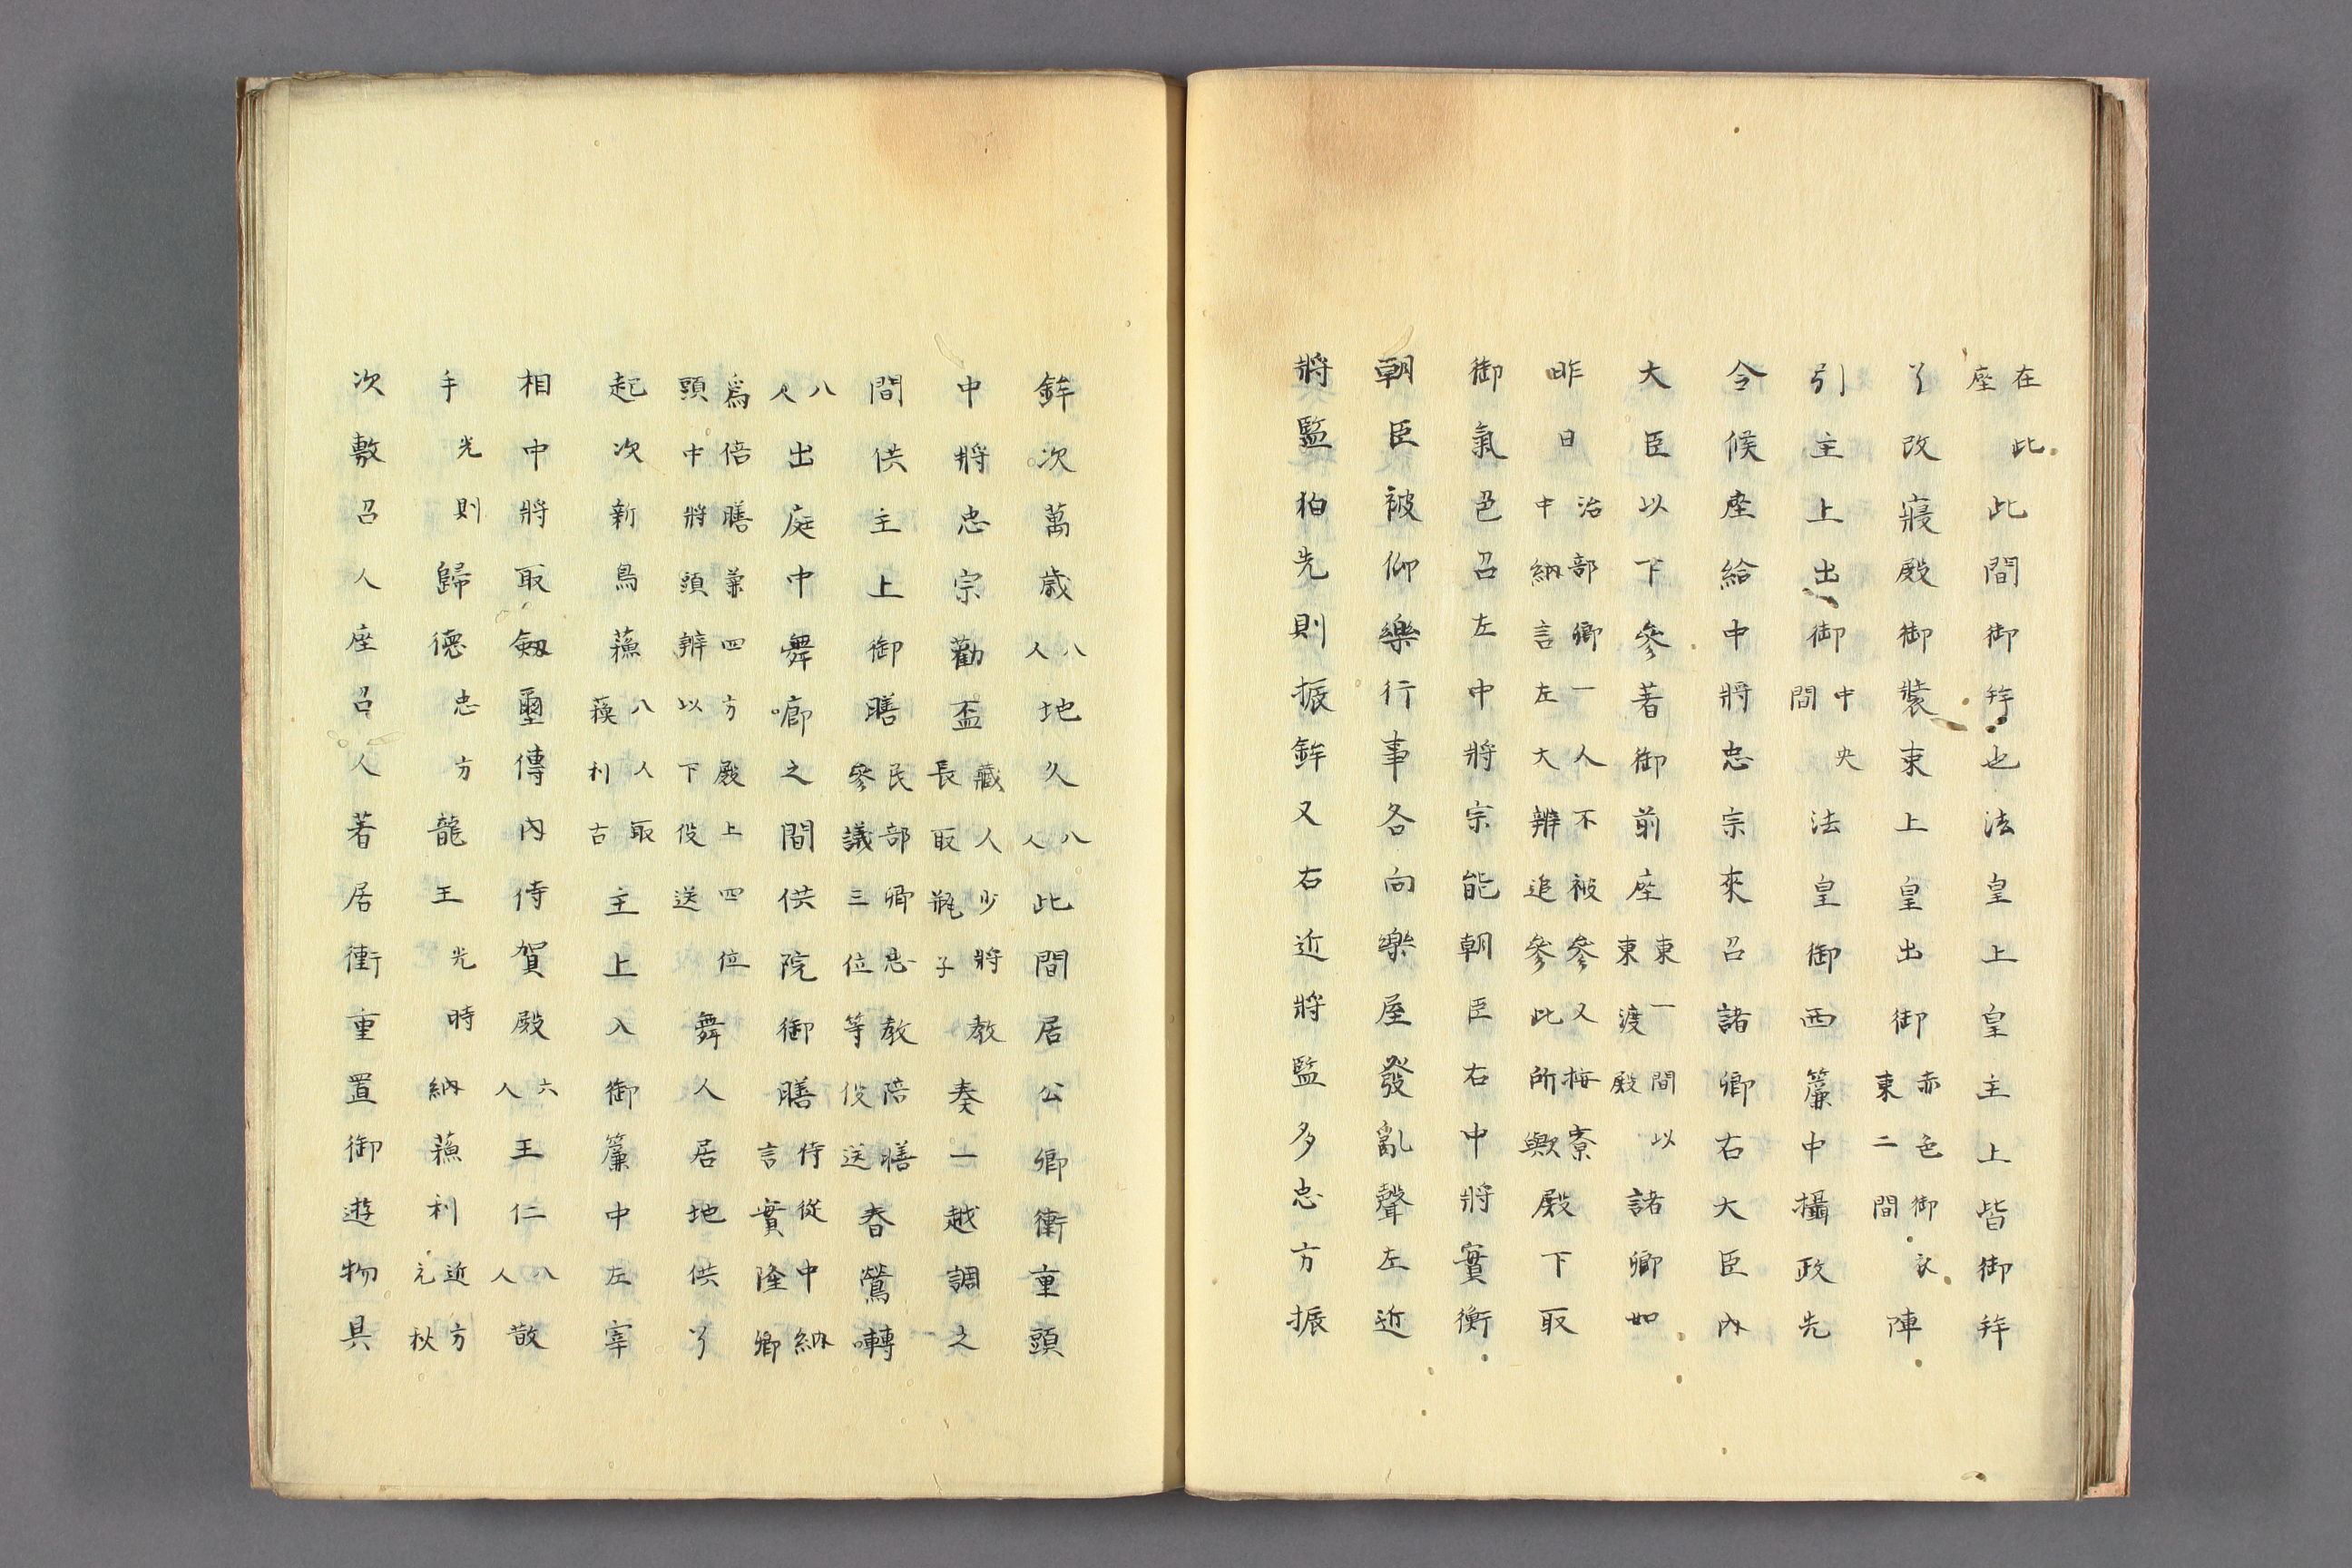 在此座此間御拜也法皇上皇主上皆御拜
了改寢殿御裝束上皇出御赤色御衣東二間陣
引主上出御中央間法皇御西簾中攝政先
令候座給中將忠宗來召諸卿右大臣內
大臣以下參著御前座東一間以東渡殿諸卿如
昨日治部卿一人不被參又梅寮中納言左大辨追參此所歟殿下取
御氣色召左中將宗能朝臣右中將實衡
朝臣被仰樂行事各向樂屋發亂聲左近
將監狛先則振鉾又右近將監多忠方振
鉾次萬歲八人地久八人此間居公卿衝重頭
中將忠宗勸盃藏人少將教長取瓶子奏一越調之
間供主上御膳民部卿忠教陪膳參議三位等役送春鶯囀
八人出庭中舞廊之間供院御膳侍從中納言實隆卿
爲倍膳菓四方殿上四位頭中將頭辨以下役送舞人居地供了
起次新鳥蘓八人取蘓利古主上入御簾中左宰
相中將取劔璽傳內侍賀殿六人王仁八人散
手光則歸德忠方龍王光時納蘓利近方元秋
次敷召人座召人著居衝重置御遊物具